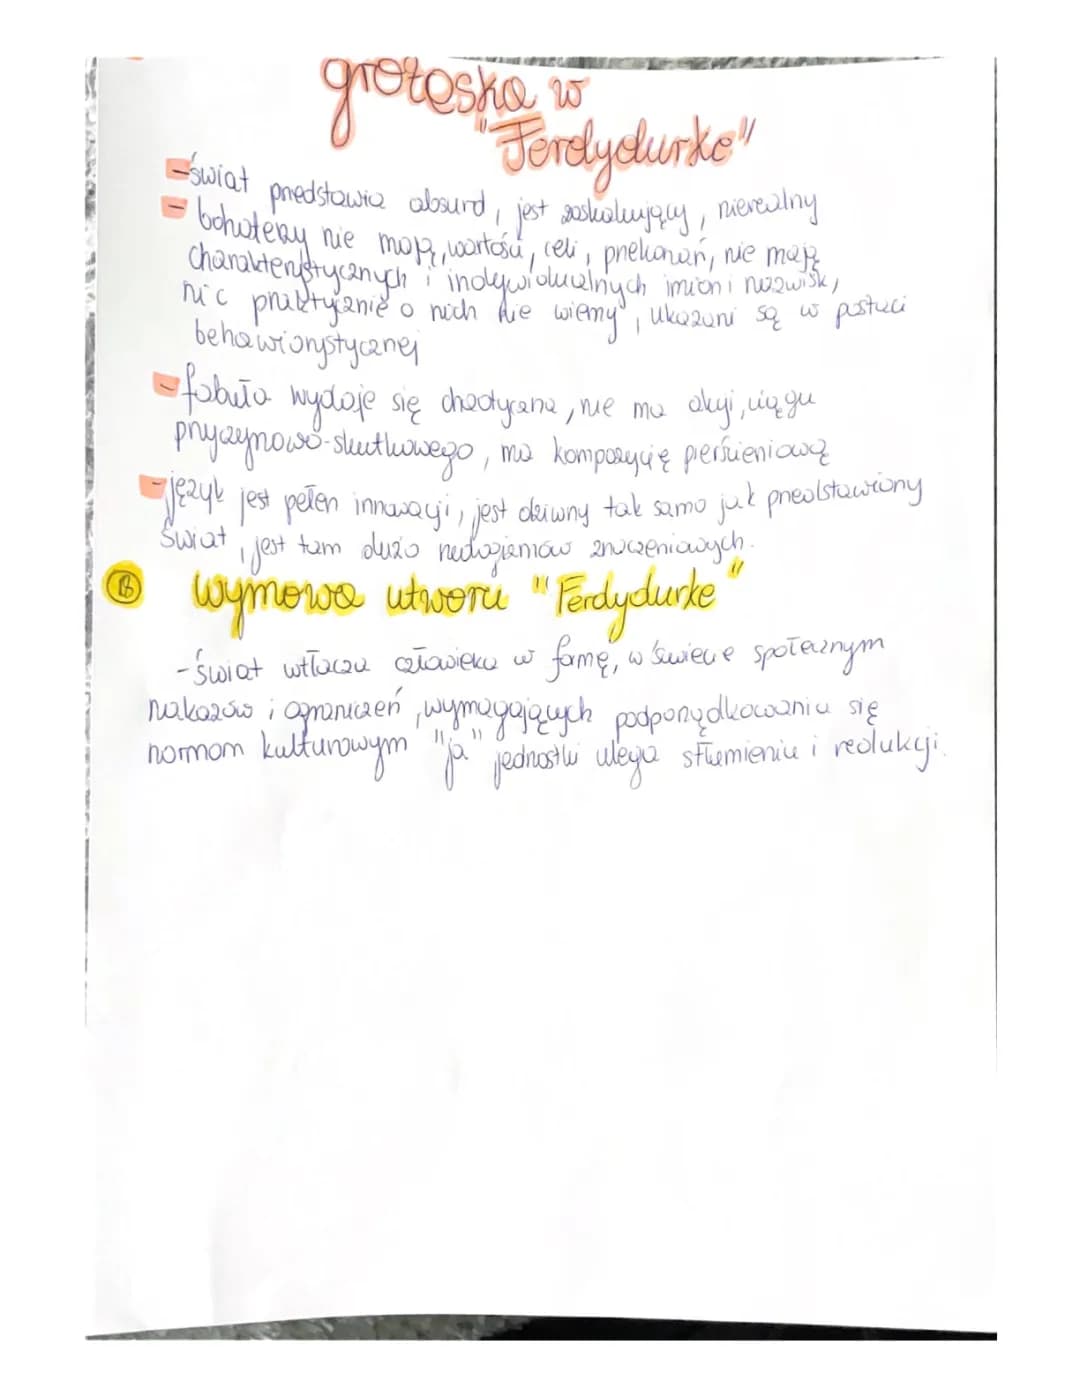 groteska w
"Ferdydurke"
-świat przedstawia absurd, jest zaskakujący, nierealny
- bohaterzy nie mają wartości, celi, przekonań, nie mają
charakterystycznych i indywidualnych imion i nazwisk,
nic praktycznie o nich nie wiemy, ukazani są w postaci
behawiorystycznej
- fabuła wydaje się chaotyczna, nie ma akcji, ciągu
przyczynowo-skutkowego, ma kompozycję pierścieniową
- język jest pełen innowacji, jest dziwny tak samo jak przedstawiony
świat, jest tam dużo znaczeniowych.
wymowa utworu "Ferdydurke"
-świat wtłacza człowieka w formę, w świecie społecznym
nakazów i ograniczeń, wymagających podporządkowania się
normom kulturowym "ja" jednostki ulega stłumieniu i redukcji.